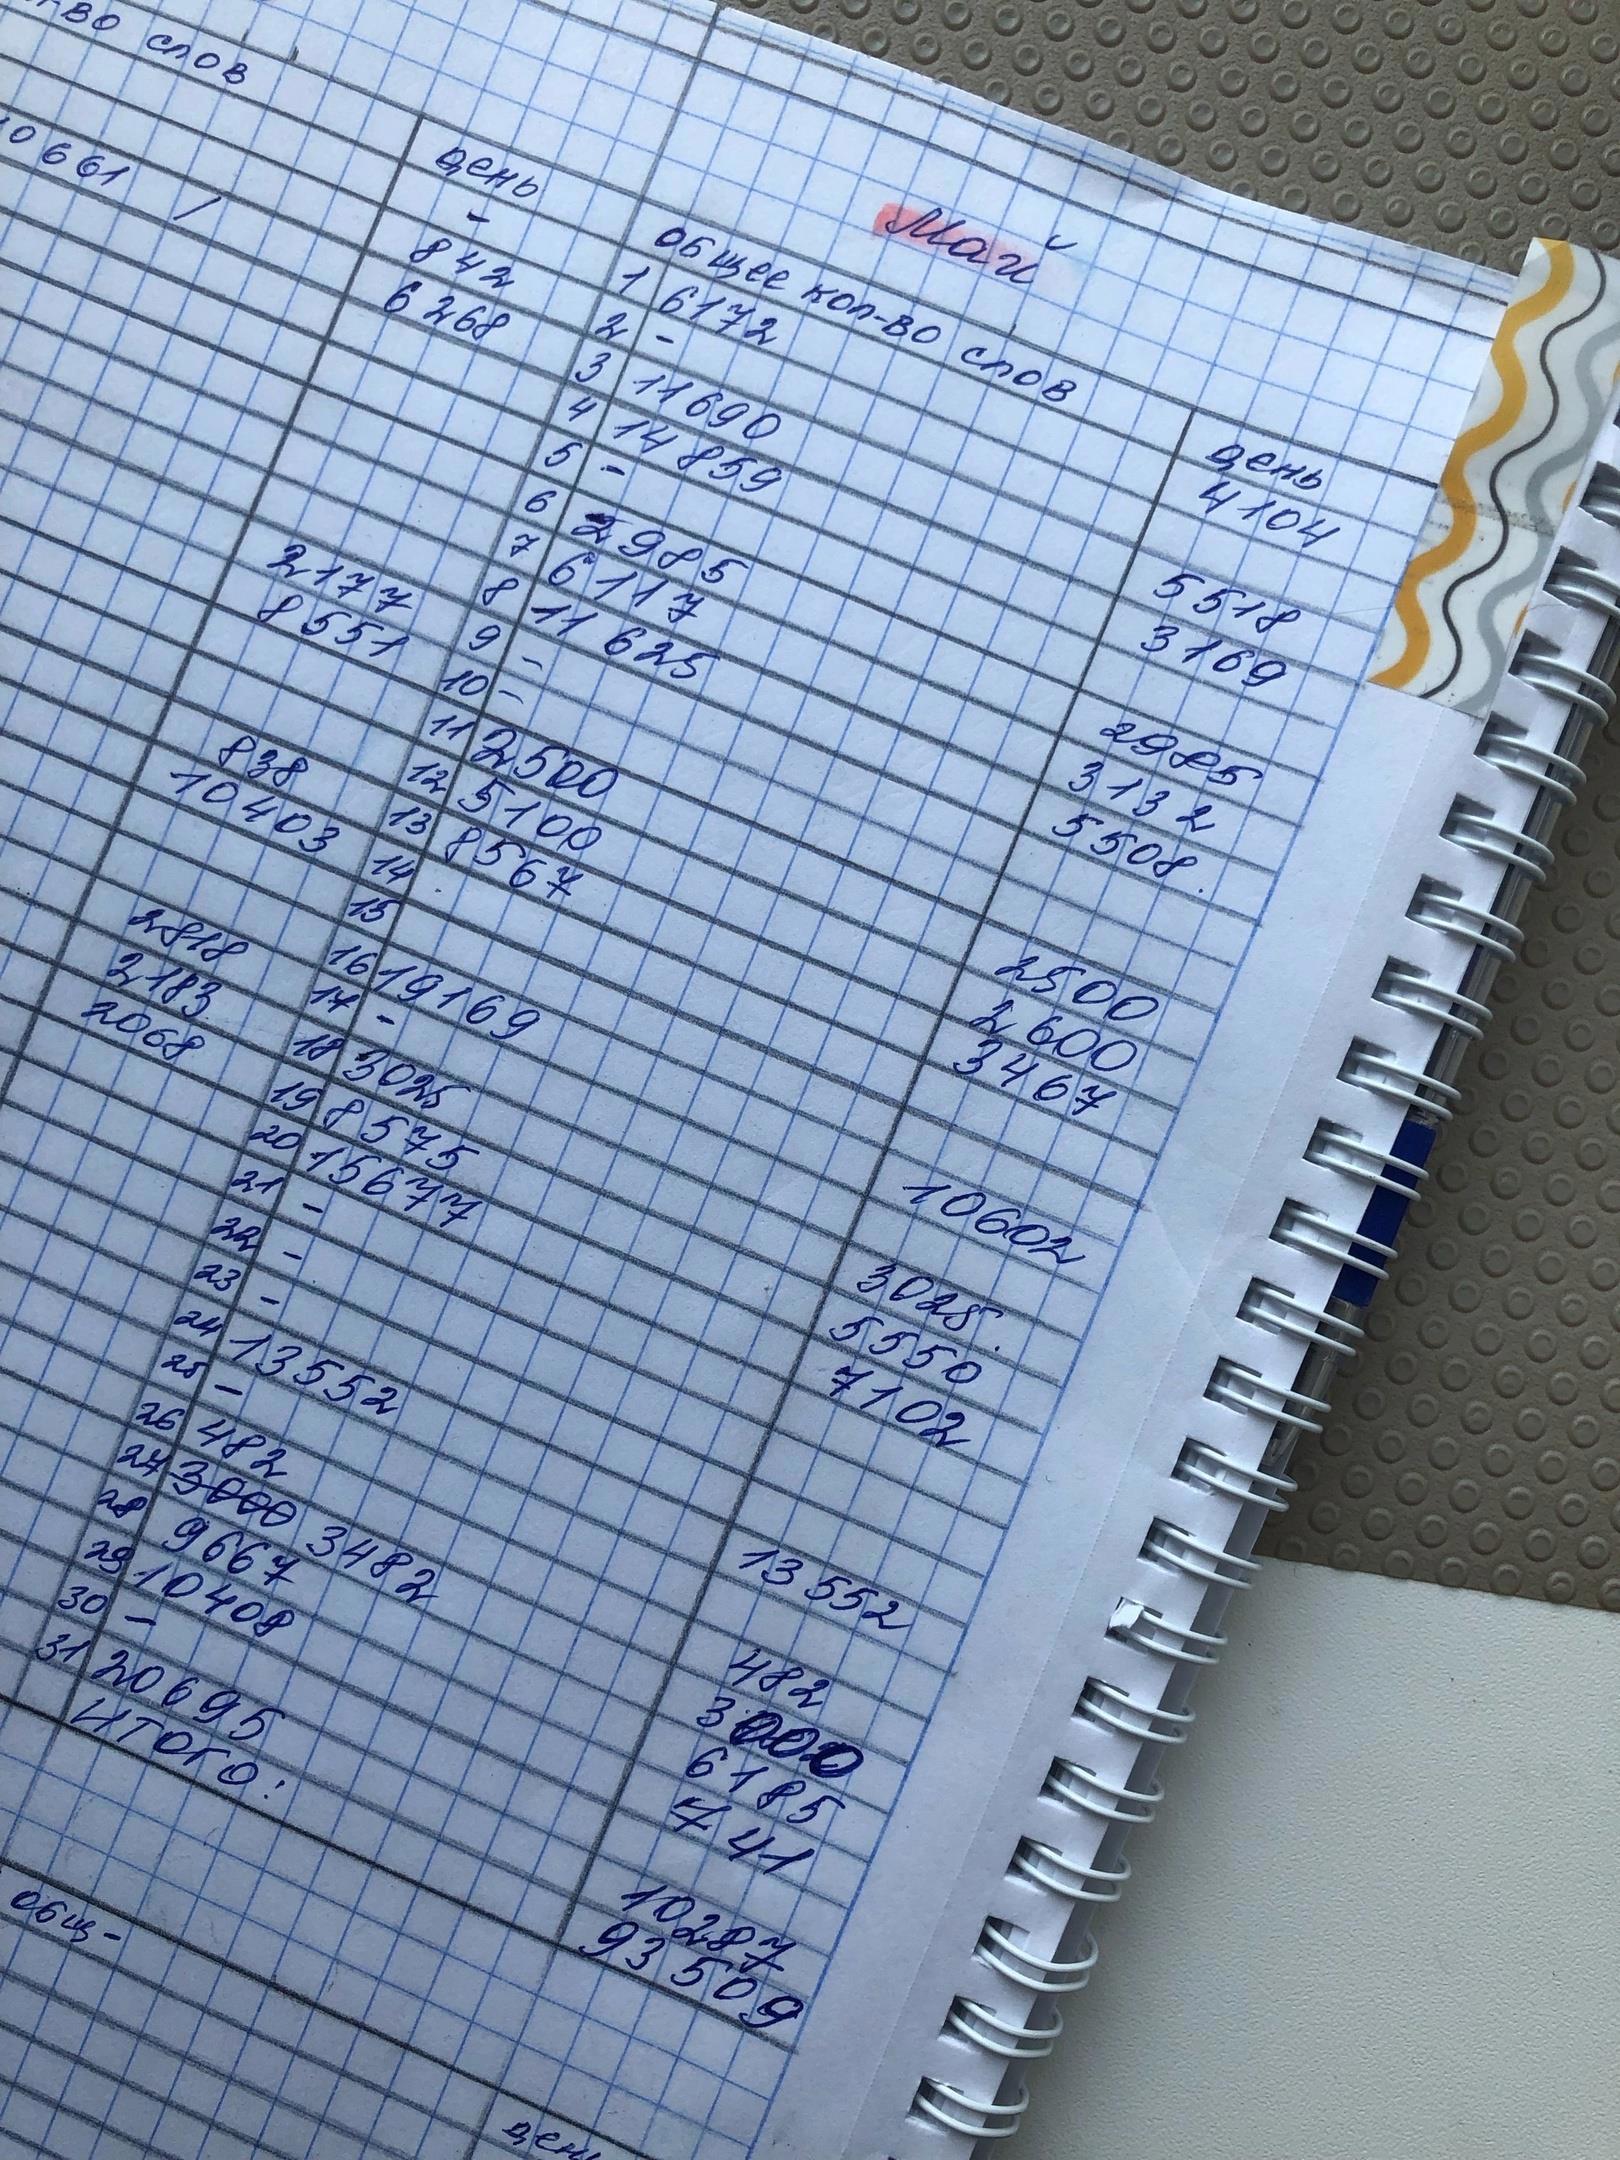 кол-во слов
10661
день
-
842
6268
2177
8551
838
10403
2818
2183
2068
Май
общее кол-во слов день
1 6172 4104
2 -
3 11690 5518
4 14859 3169
5 -
6 2985 2985
7 6117 3132
8 11625 5508.
9 -
10 -
11 2500 2500
12 5100 2600
13 8567 3467
14
15
16 19169 10602
17 -
18 3025 3025.
19 8575 5550
20 15677 7102
21 -
22 -
23 -
24 13552 13552
25 -
26 482 482
27 3000 3482 3000
28 9667 6185
29 10408 741
30 -
31 20695 10287
ИТОГО: 93509
общ-
день